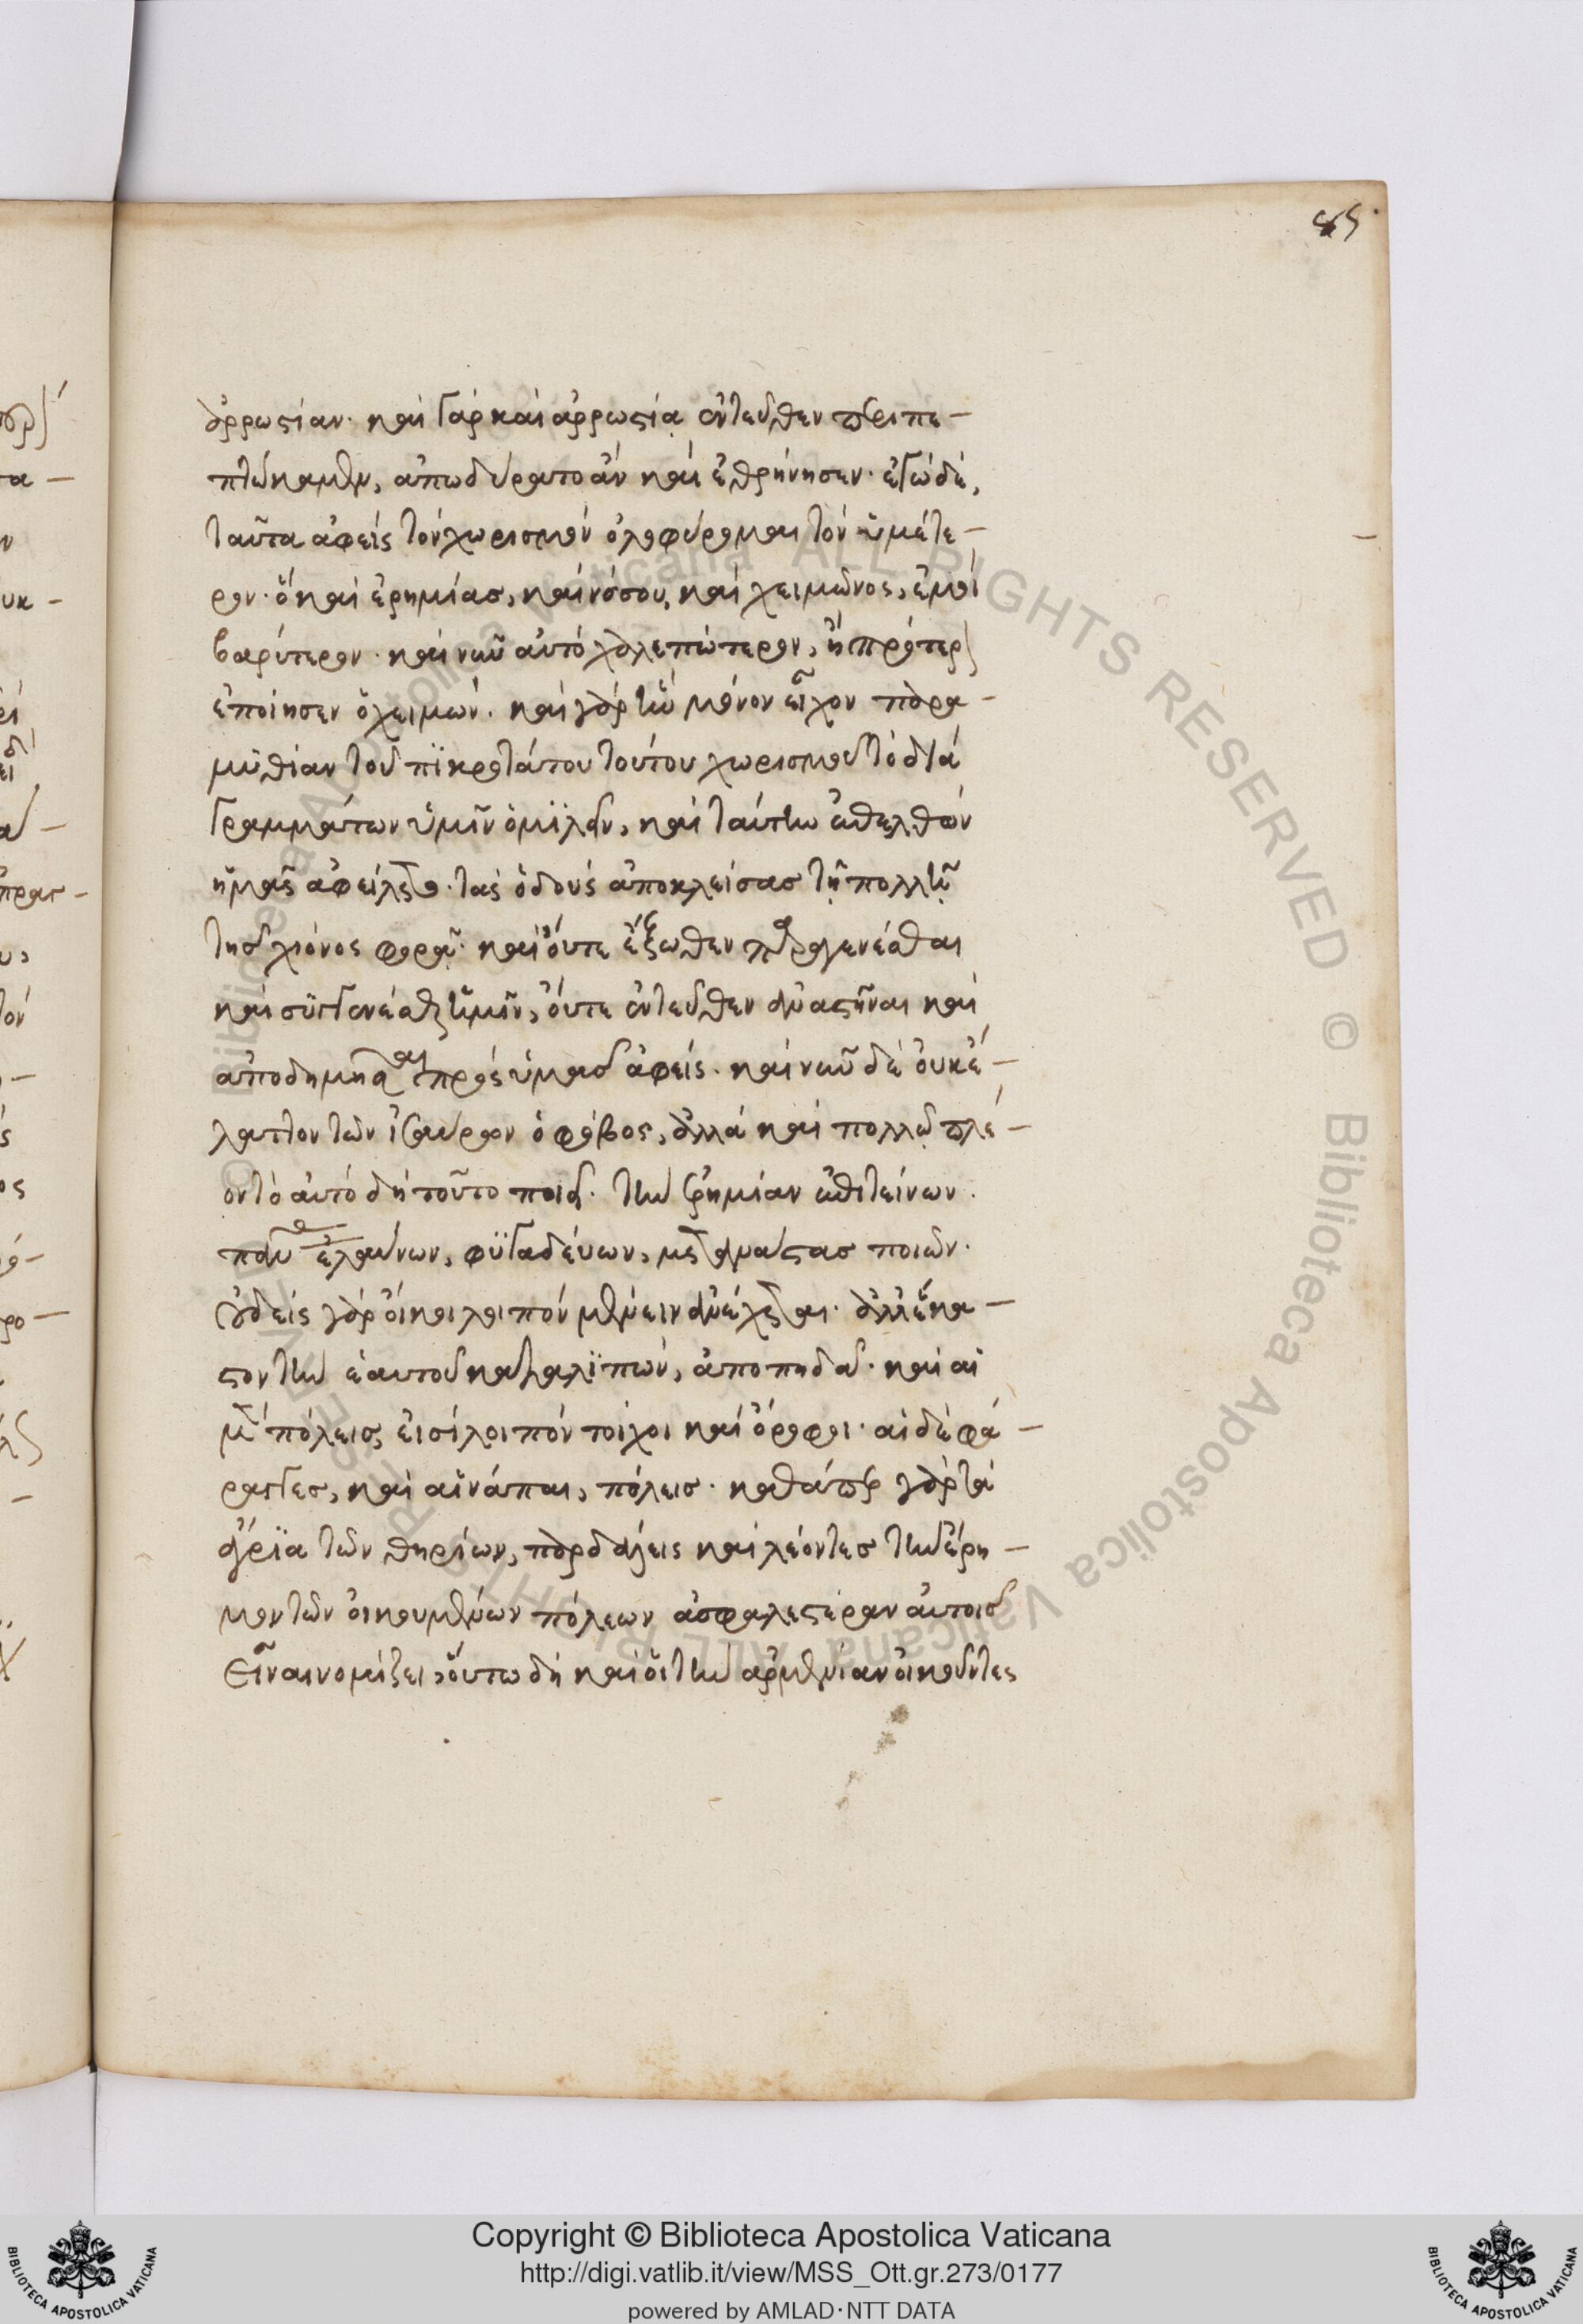 ἀρρωστίαν. καὶ γὰρ καὶ ἀρρωστίᾳ ἐντεῦθεν περιπε-
πτώκαμεν, ἀπωδύρατο ἂν καὶ ἐθρήνησεν. ἐγὼ δὲ,
ταῦτα ἀφεὶς τὸν χωρισμὸν ὀλοφύρομαι τὸν ὑμέτε-
ρον. ὃ καὶ ἐρημίας, καὶ νόσου, καὶ χειμῶνος, ἐμοὶ
βαρύτερον. καὶ νῦν αὐτὸ χαλεπώτερον, ἢ πρότερον
ἐποίησεν ὁ χειμών. καὶ γὰρ ἣν μόνον εἶχον παρα-
μυθίαν τοῦ πϊκροτάτου τούτου χωρισμοῦ τὸ διὰ
γραμμάτων ὑμῖν ὁμιλεῖν, καὶ ταύτην ἐπελθὼν
ἡμᾶς ἀφείλετο. τὰς ὁδοὺς ἀποκλείσας τῇ πολλῇ
τῆς χιόνος φορᾷ. καὶ οὔτε ἔξωθεν παραγενέσθαι
καὶ συγγενέσθαι ἡμῖν, οὔτε ἐντεῦθεν ἀναστῆναι καὶ
ἀποδημῆσαι πρὸς ὑμᾶς ἀφείς. καὶ νῦν δὲ οὐκ ἔ-
λαττον τῶν ἰσαύρων ὁ φόβος, ἀλλὰ καὶ πολλῷ πλέ-
ον τὸ αὐτὸ δὴ τοῦτο ποιεῖ. τὴν ἐρημίαν ἐπιτείνων.
ἐλαύνων, φυγαδεύων, μετανάστας ποιῶν.
οὐδεὶς γὰρ οἴκοι λοιπὸν μένειν ἀνέχεται. ἀλλ' ἕκα-
στον τὴν ἑαυτοῦ καταλιπὼν, ἀποπηδᾷ. καὶ αἱ
μὲν πόλεις εἰσὶ λοιπὸν τοίχοι καὶ ὄροφοι. αἱ δὲ φά-
ραγγες, καὶ αἱ νάπαι, πόλεις. καθάπερ γὰρ τὰ
ἄγρια τῶν θηρίων, παρδάλεις καὶ λέοντες τὴν ἔρη-
μον τῶν οἰκουμένων πόλεων ἀσφαλεστέραν αὐτοῖς
εἶναι νομίζει, οὕτω δὴ καὶ οἱ τὴν ἀρμενίαν οἰκοῦντες
Copyright © Biblioteca Apostolica Vaticana
http://digi.vatlib.it/view/MSS_Ott.gr.273/0177
powered by AMLAD·NTT DATA